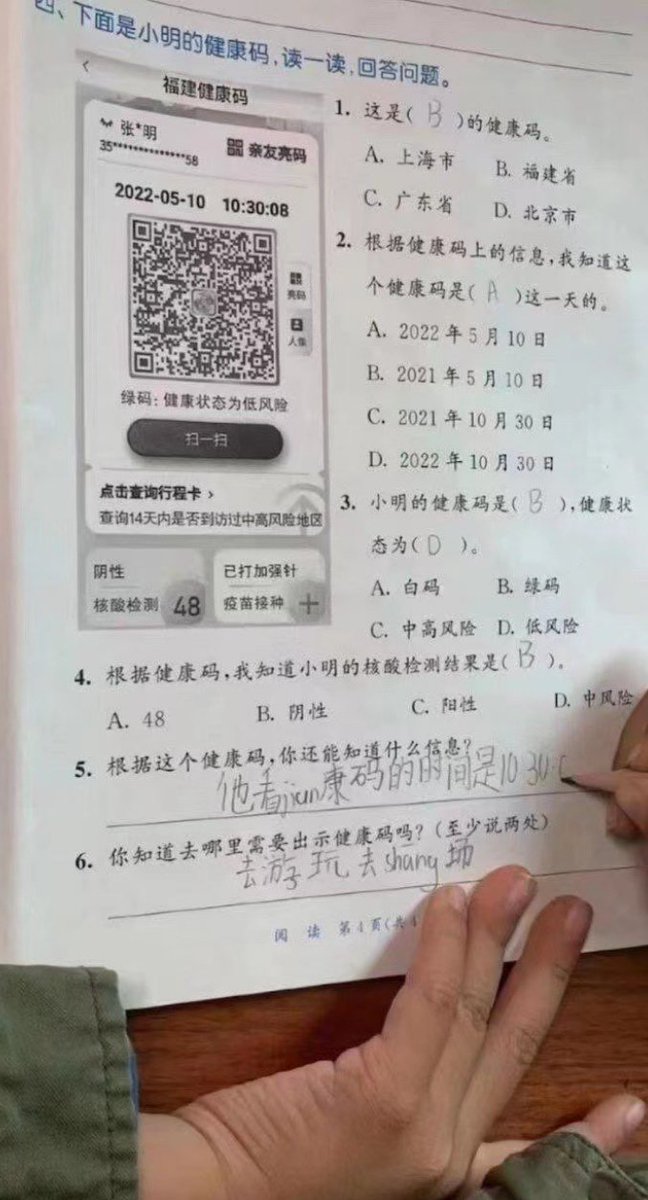 四、下面是小明的健康码,读一读,回答问题。
福建健康码
张*明
35**************58
亲友亮码
2022-05-10 10:30:08
亮码
人像
绿码:健康状态为低风险
扫一扫
点击查询行程卡
查询14天内是否到访过中高风险地区
阴性
核酸检测 48
已打加强针
疫苗接种
1. 这是( B )的健康码。
A. 上海市 B. 福建省
C. 广东省 D. 北京市
2. 根据健康码上的信息,我知道这
个健康码是( A )这一天的。
A. 2022年5月10日
B. 2021年5月10日
C. 2021年10月30日
D. 2022年10月30日
3. 小明的健康码是( B ),健康状
态为( D )。
A. 白码 B. 绿码
C. 中高风险 D. 低风险
4. 根据健康码,我知道小明的核酸检测结果是( B )。
A. 48 B. 阴性 C. 阳性 D. 中风险
5. 根据这个健康码,你还能知道什么信息?
他看jian康码的时间是10:30:
6. 你知道去哪里需要出示健康码吗?(至少说两处)
去游玩去shang场
阅 读 第4页(共4